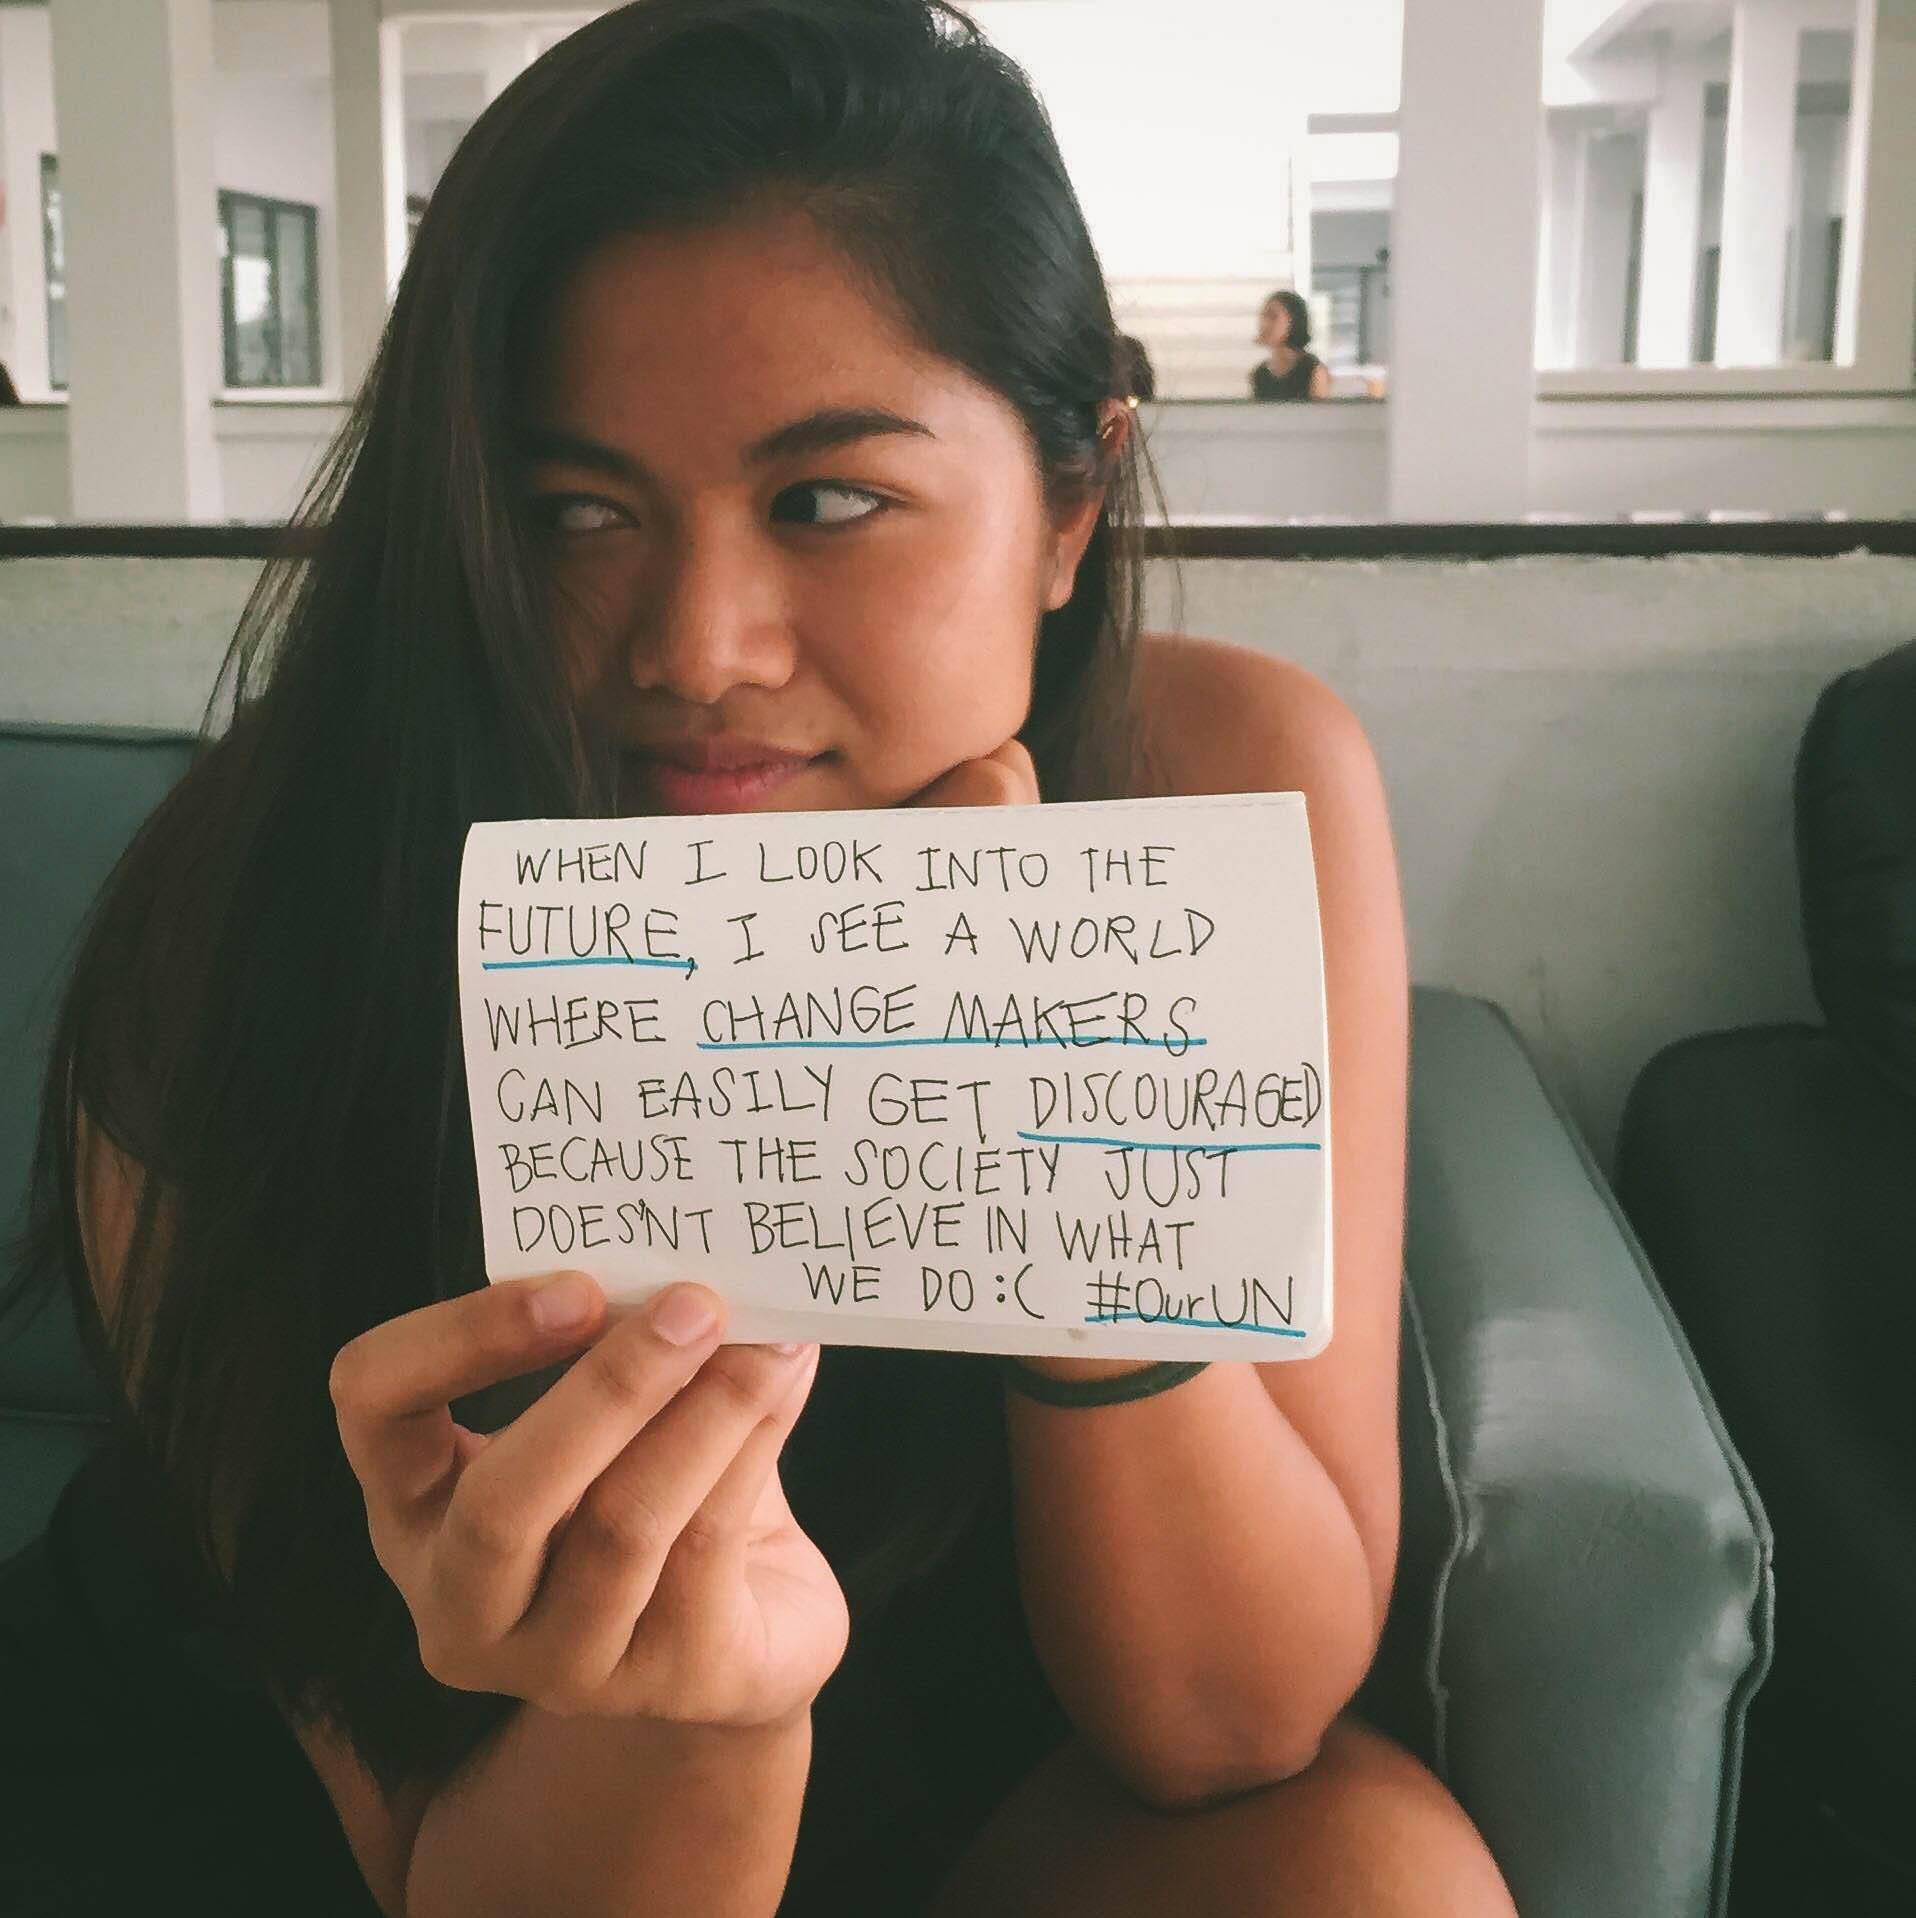 WHEN I LOOK INTO THE
FUTURE, I SEE A WORLD
WHERE CHANGE MAKERS
CAN EASILY GET DISCOURAGED
BECAUSE THE SOCIETY JUST
DOES'NT BELIEVE IN WHAT
WE DO :( #OurUN